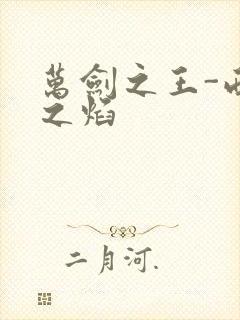 萬劍之王-
之焰
二月河.